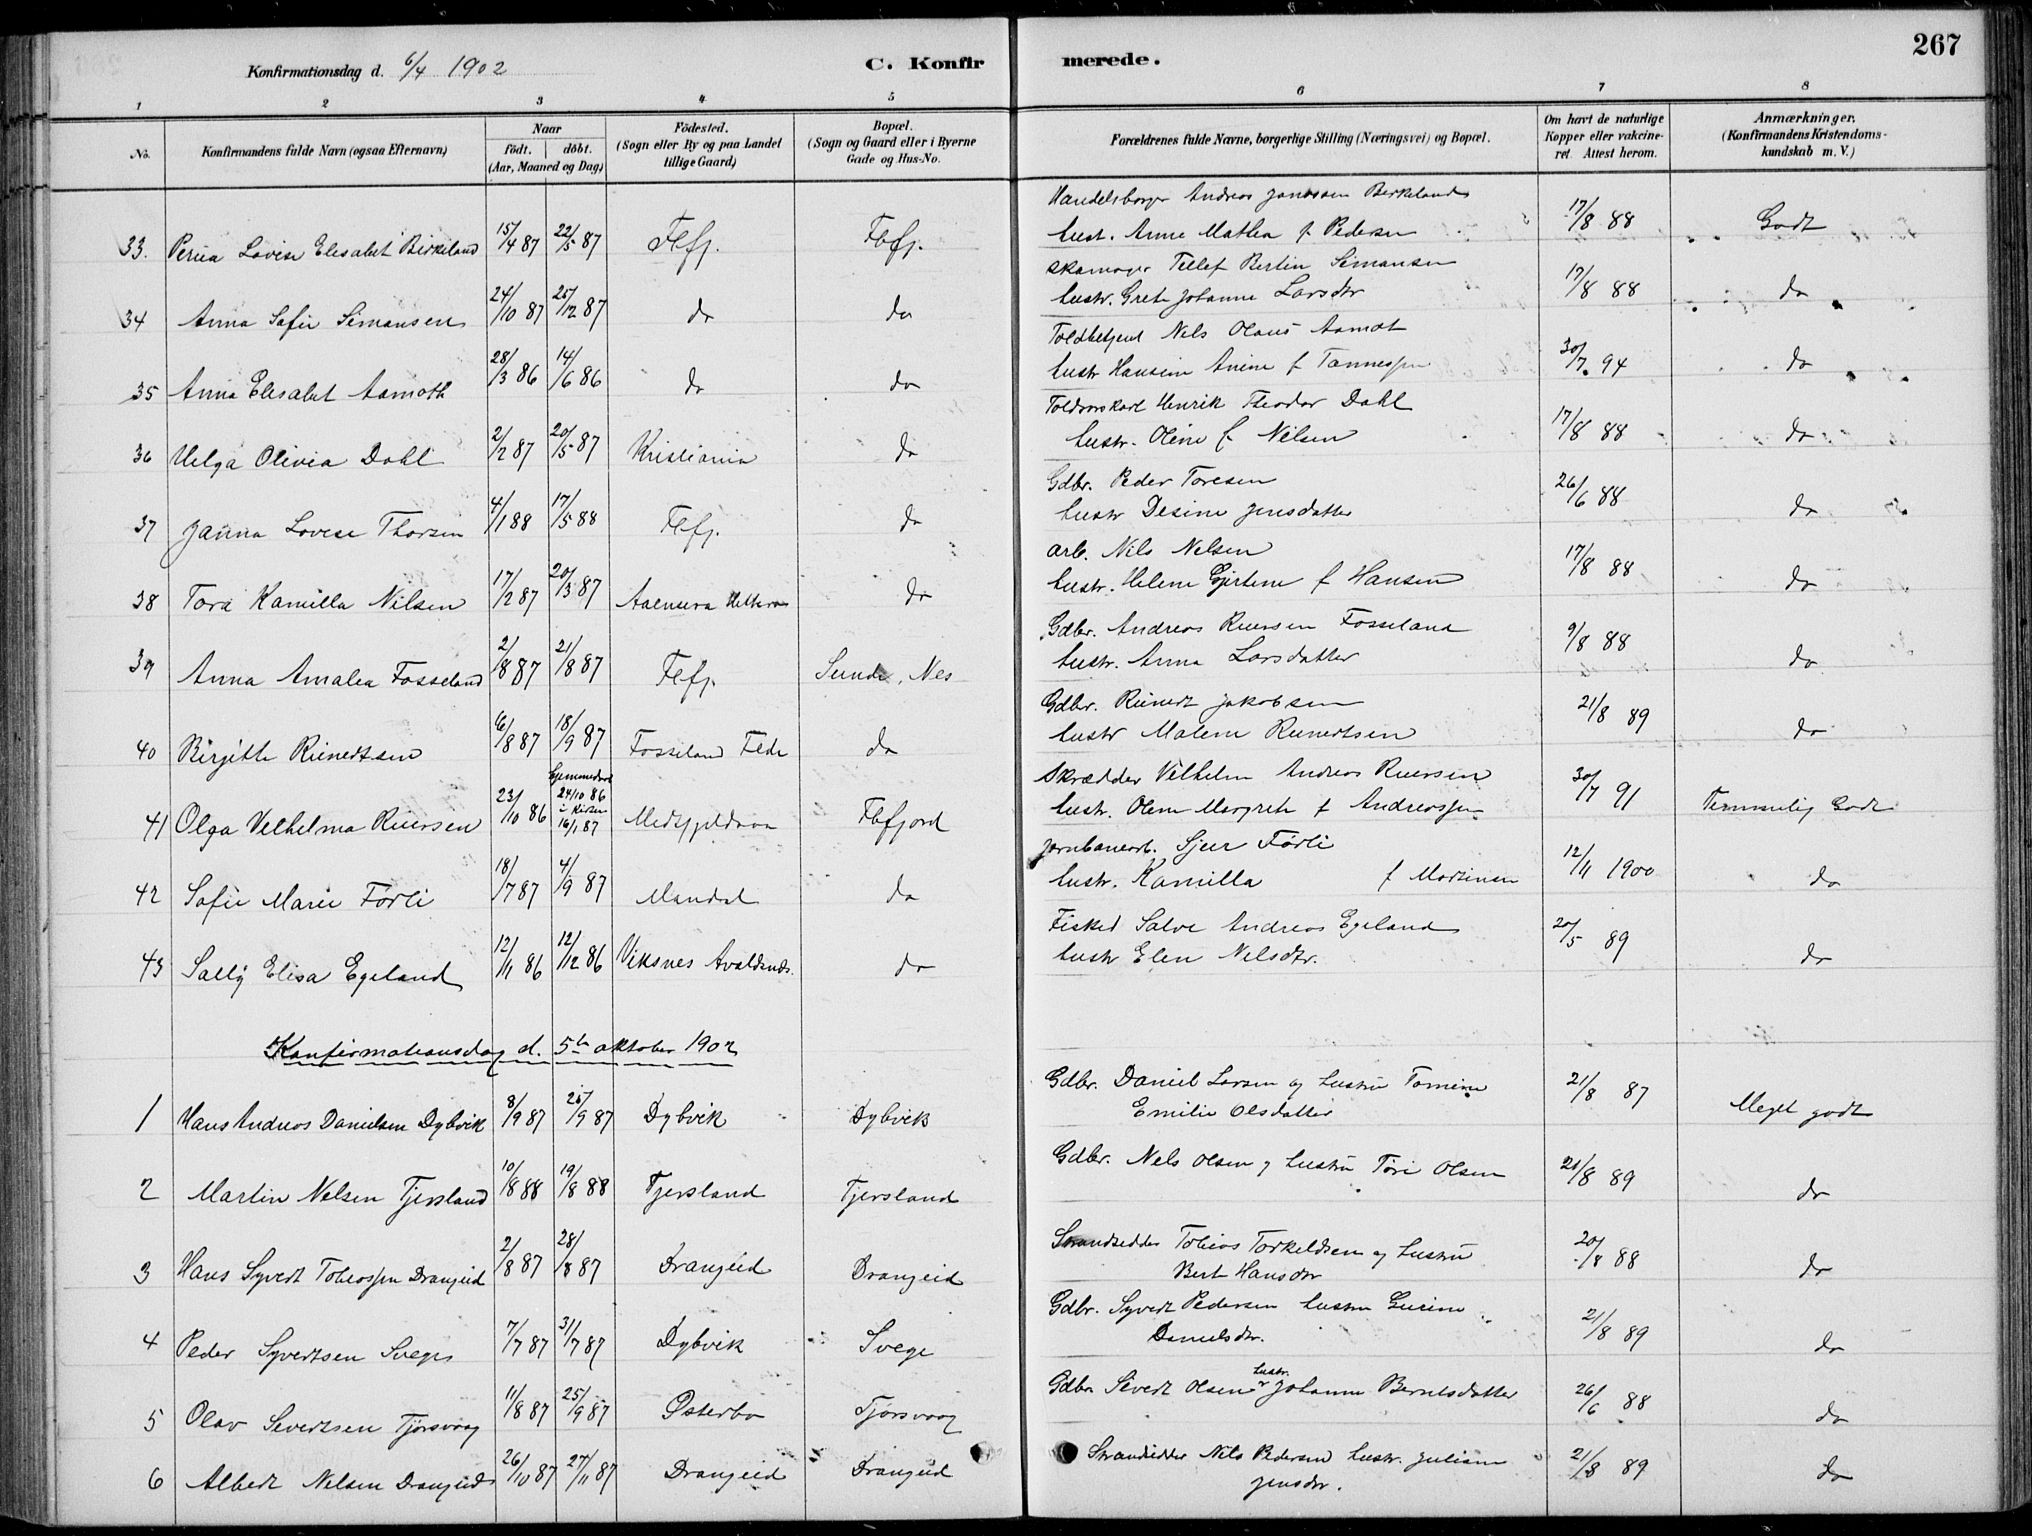 267
Konfirmationsdag d. 6/4 1902
C. Konfirmerede.
1 2 3 4 5 6 7 8
No. Konfirmandens fulde Navn (ogsaa Efternavn) Naar födt. döbt. (Aar, Maaned og Dag) Födested. (Sogn eller By og paa Landet tillige Gaard) Bopæl. (Sogn og Gaard eller i Byerne Gade og Hus-No. Forældrenes fulde Navne, borgerlige Stilling (Næringsvei) og Bopæl. Om havt de naturlige Kopper eller vakcineret Attest herom. Anmærkninger. (Konfirmandens Kristendomskundskab m. V.)
33. Lovise Elesabet Birkeland 15/4 87 22/5 87 Flfj. Flfj. Handelsborger Andreas Birkeland
hust. Anne Mathea f. Pedersen 17/8 88 Godt
34 Anna Sofie Simonsen 24/10 87 25/12 87 do do Skomager Tellef Bertin Simonsen
hustr. Grete Johanne Larsdtr 17/8 88 do
35 Anna Elesabet Aamoth 28/3 86 14/6 86 do do Toldbetjent Nils Olaus Aamot
hustr Hansine Anine f 30/7 94 do
36 Helga Olivia Dahl 2/2 87 20/5 87 Kristiania do Henrik Theodor Dahl
hustr. Oline f Nilsen 17/8 88 do
37 Janna Lovise Thorsen 4/1 88 17/5 88 Flfj. do Gdbr. Peder Toresen
hustr Desine Jensdatter 26/6 88 do
38 Tora Kamilla Nilsen 17/2 87 20/3 87 do arb. Nils Nelsen
hustr. Helene f Hansen 17/8 88 do
39 Anna Amalia Fosseland 2/8 87 21/8 87 Flfj. Sunde, Nes Gdbr. Andreas Fosseland
hustr. Anna Larsdatter 9/8 88 do
40 Birgitte Reinertsen 6/8 87 18/9 87 Fosseland Fede do Gdbr. Reinert Jakobsen
hustr Malene Reinertsen 21/8 89 do
41 Olga Velhelma Reiersen 23/10 86 Hjemmedøbt 24/10 86 i Kirken 16/1 87 Flfjord Skrædder Vilhelm Andreas Reiersen
hustr. Margrete f Andreassen 30/7 91 Temmelig Godt
42 Sofie Marie Førli 18/7 87 4/9 87 Mandal do Jernbanearb. Sjur Førli
hustr. Kamilla f 12/11 1900 do
43 Sally Elisa Egeland 12/11 86 12/12 86 Viksnes Avaldsnes. do Salve Andreas Egeland
hustr Elen Nelsdtr. 20/5 89 do
Konfirmationsdag d. 5te oktober 1902
1 Hans Andreas Danielsen Dybvik 8/9 87 25/9 87 Dybvik Dybvik Gdbr. Daniel Larsen og hustru Tomine
Emilie Olsdatter 21/8 87 Meget godt
2 Martin Nelsen Tjersland 10/8 88 19/8 88 Tjersland Tjersland Gdbr. Nels Olsen og hustru Tori Olsen 21/8 89 do
3 Hans Syvert Tobiassen Drangeid 2/8 87 28/8 87 Drangeid Drangeid Strandsidder Tobias Torkeldsen og hustru
Bert Hansdtr 20/8 88 do
4 Peder Syvertsen Svege 7/7 87 31/7 87 Dybvik Svege Gdbr. Syvert Pedersen hustru Gusine
Danielsdtr. 21/8 89 do
5 Olav Severtsen Tjørsvaag 11/8 87 25/9 87 Østerbø Tjørsvaag Gdbr Severt Olsen hustr. Johanne Berntsdatter 26/6 88 do
6 Albert Nelsen Drangeid 26/10 87 27/11 87 Drangeid Drangeid Strandsidder Nils Pedersen hustr. Juliane
Jensdtr. 21/8 89 do